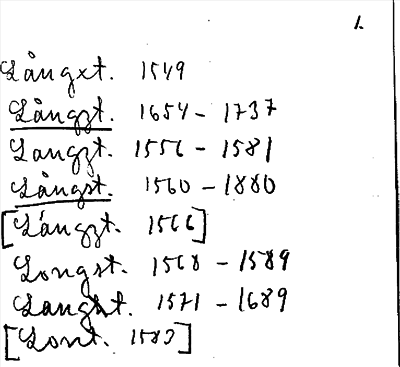 1.
Långxt. 1549
Långzt. 1654 - 1737
Langzt. 1556 - 1581
Långst. 1560 - 1880
[Långzt. 1566]
Longst. 1568 - 1589
Langst. 1571 - 1689
[Lont. 1583]